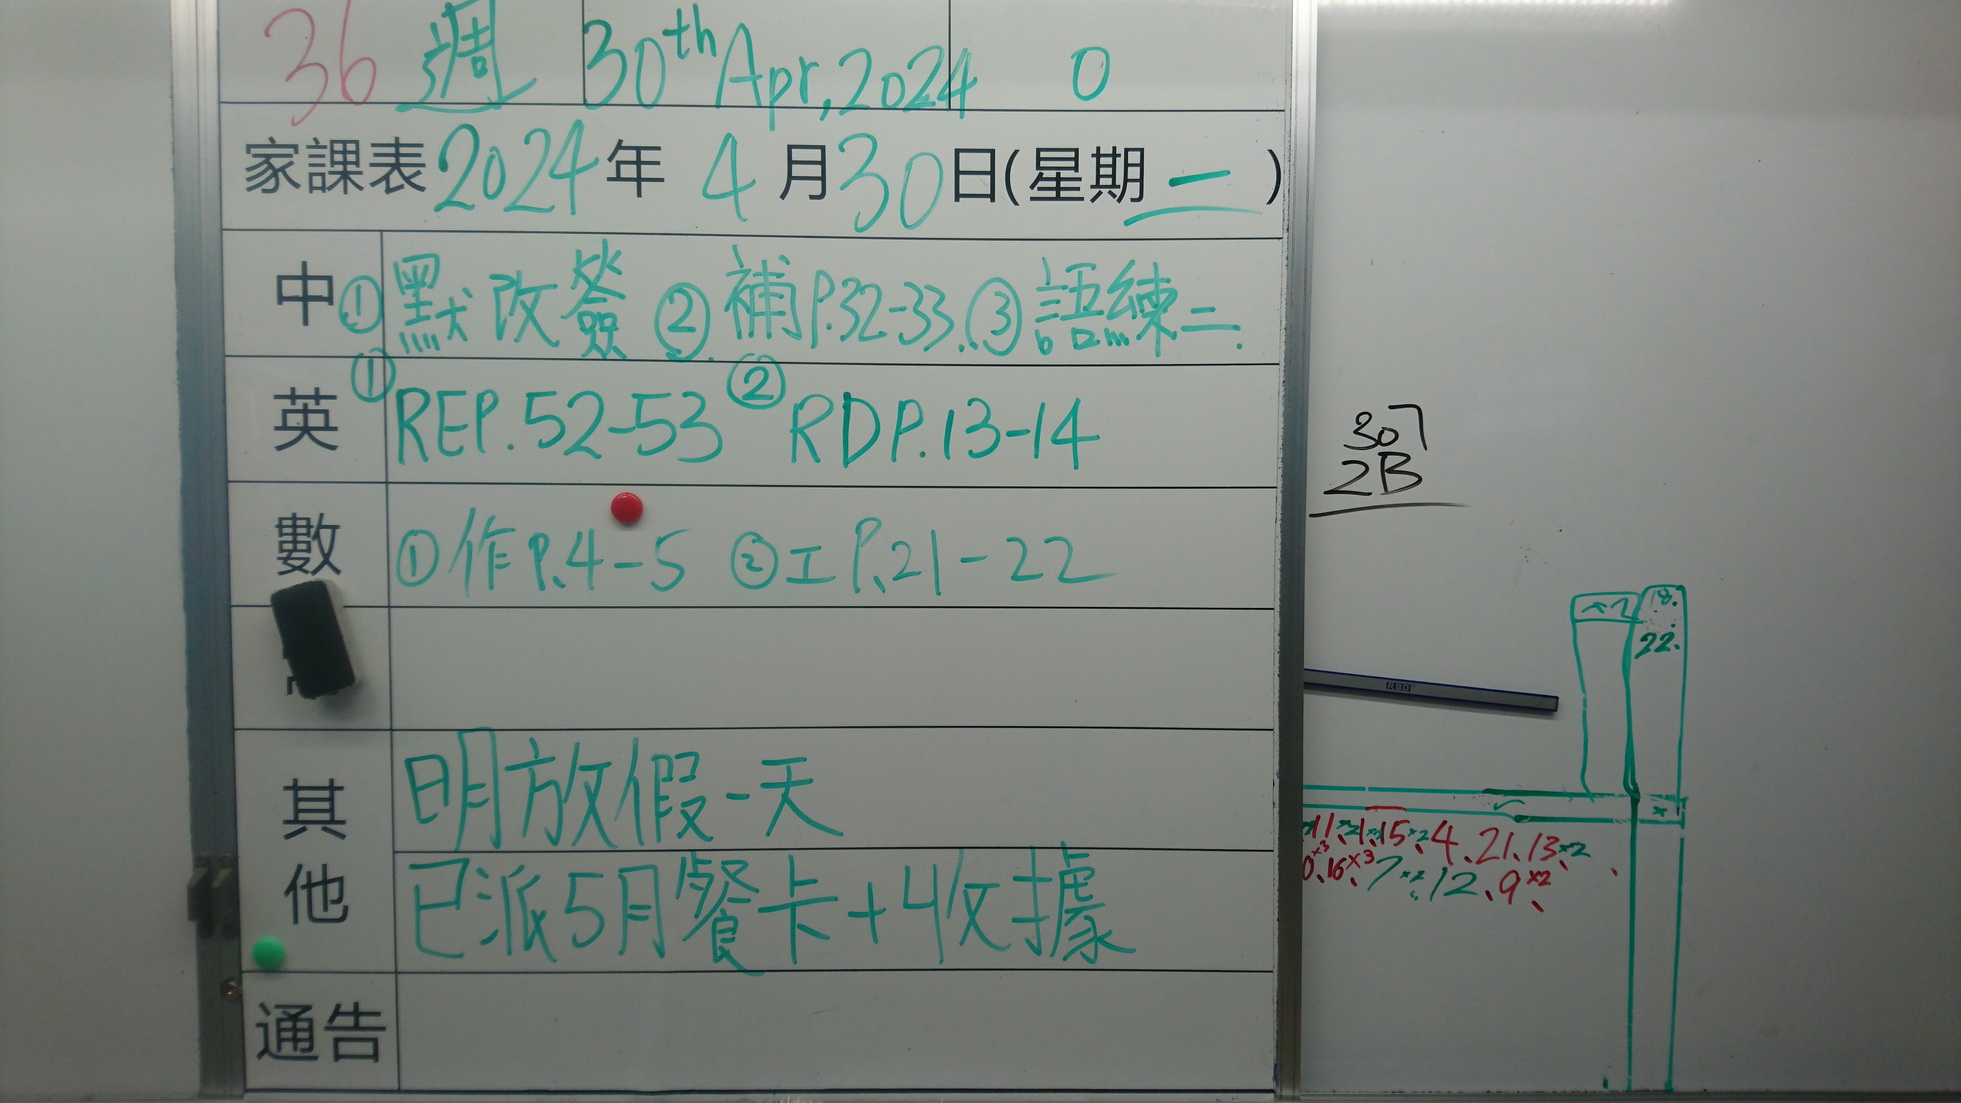 36 週 30th Apr, 2024 0
家課表 2024 年 4 月 30 日(星期 二 )
中 ① 默改簽 ② 補P.32-33. ③ 語練二.
英 ① REP.52-53 ② RDP.13-14
數 ① 作P.4-5 ② 工P.21-22
其他 明放假一天
已派5月餐卡+4收據
通告
307
2B
×1 18.
22.
R80
11、×2 1、×3 15、×2 4、21、13、×2
16、×3 7 ×2 12、9 ×2